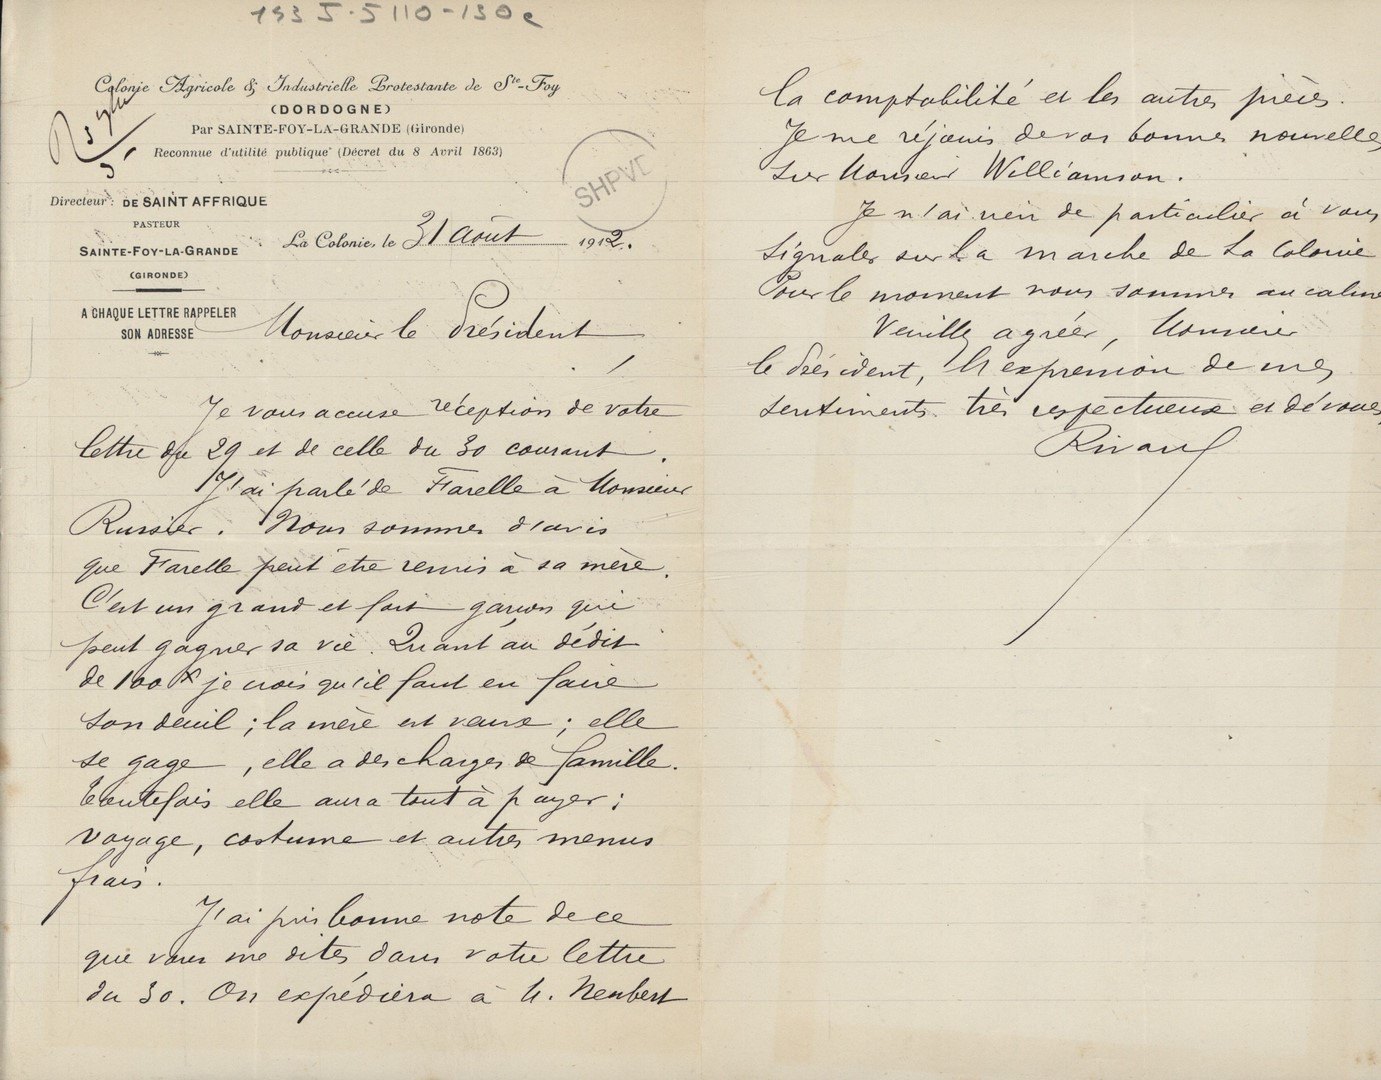 193 J. 5 110-130e
Colonie Agricole & Industrielle Protestante de Ste-Foy
(DORDOGNE)
Par SAINTE-FOY-LA-GRANDE (Gironde)
Reconnue d'utilité publique (Décret du 8 Avril 1863)
SHPVD
Directeur : DE SAINT AFFRIQUE
PASTEUR
SAINTE-FOY-LA-GRANDE
(GIRONDE)
A CHAQUE LETTRE RAPPELER
SON ADRESSE
La Colonie, le 31 Août 1912.
Monsieur le Président,
Je vous accuse réception de votre
lettre du 29 et de celle du 30 courant.
J'ai parlé de Farelle à Monsieur
Russier. Nous sommes d'avis
que Farelle peut être remis à sa mère.
C'est un grand et fort garçon qui
peut gagner sa vie. Quant au dédit
de 100 je crois qu'il faut en faire
son deuil ; la mère est veuve ; elle
se gage, elle a des charges de famille.
Toutefois elle aura tout à payer ;
voyage, costume et autres menus
frais.
J'ai pris bonne note de ce
que vous me dites dans votre lettre
du 30. On expédiera à M. Neubert
la comptabilité et les autres pièces.
Je me réjouis de vos bonnes nouvelles
sur Monsieur Williamson.
Je n'ai rien de particulier à vous
signaler sur la marche de la Colonie
Pour le moment nous sommes au calme
Veuillez agréer, Monsieur
le Président, l'expression de mes
sentiments très respectueux et dévoués
Rivauf